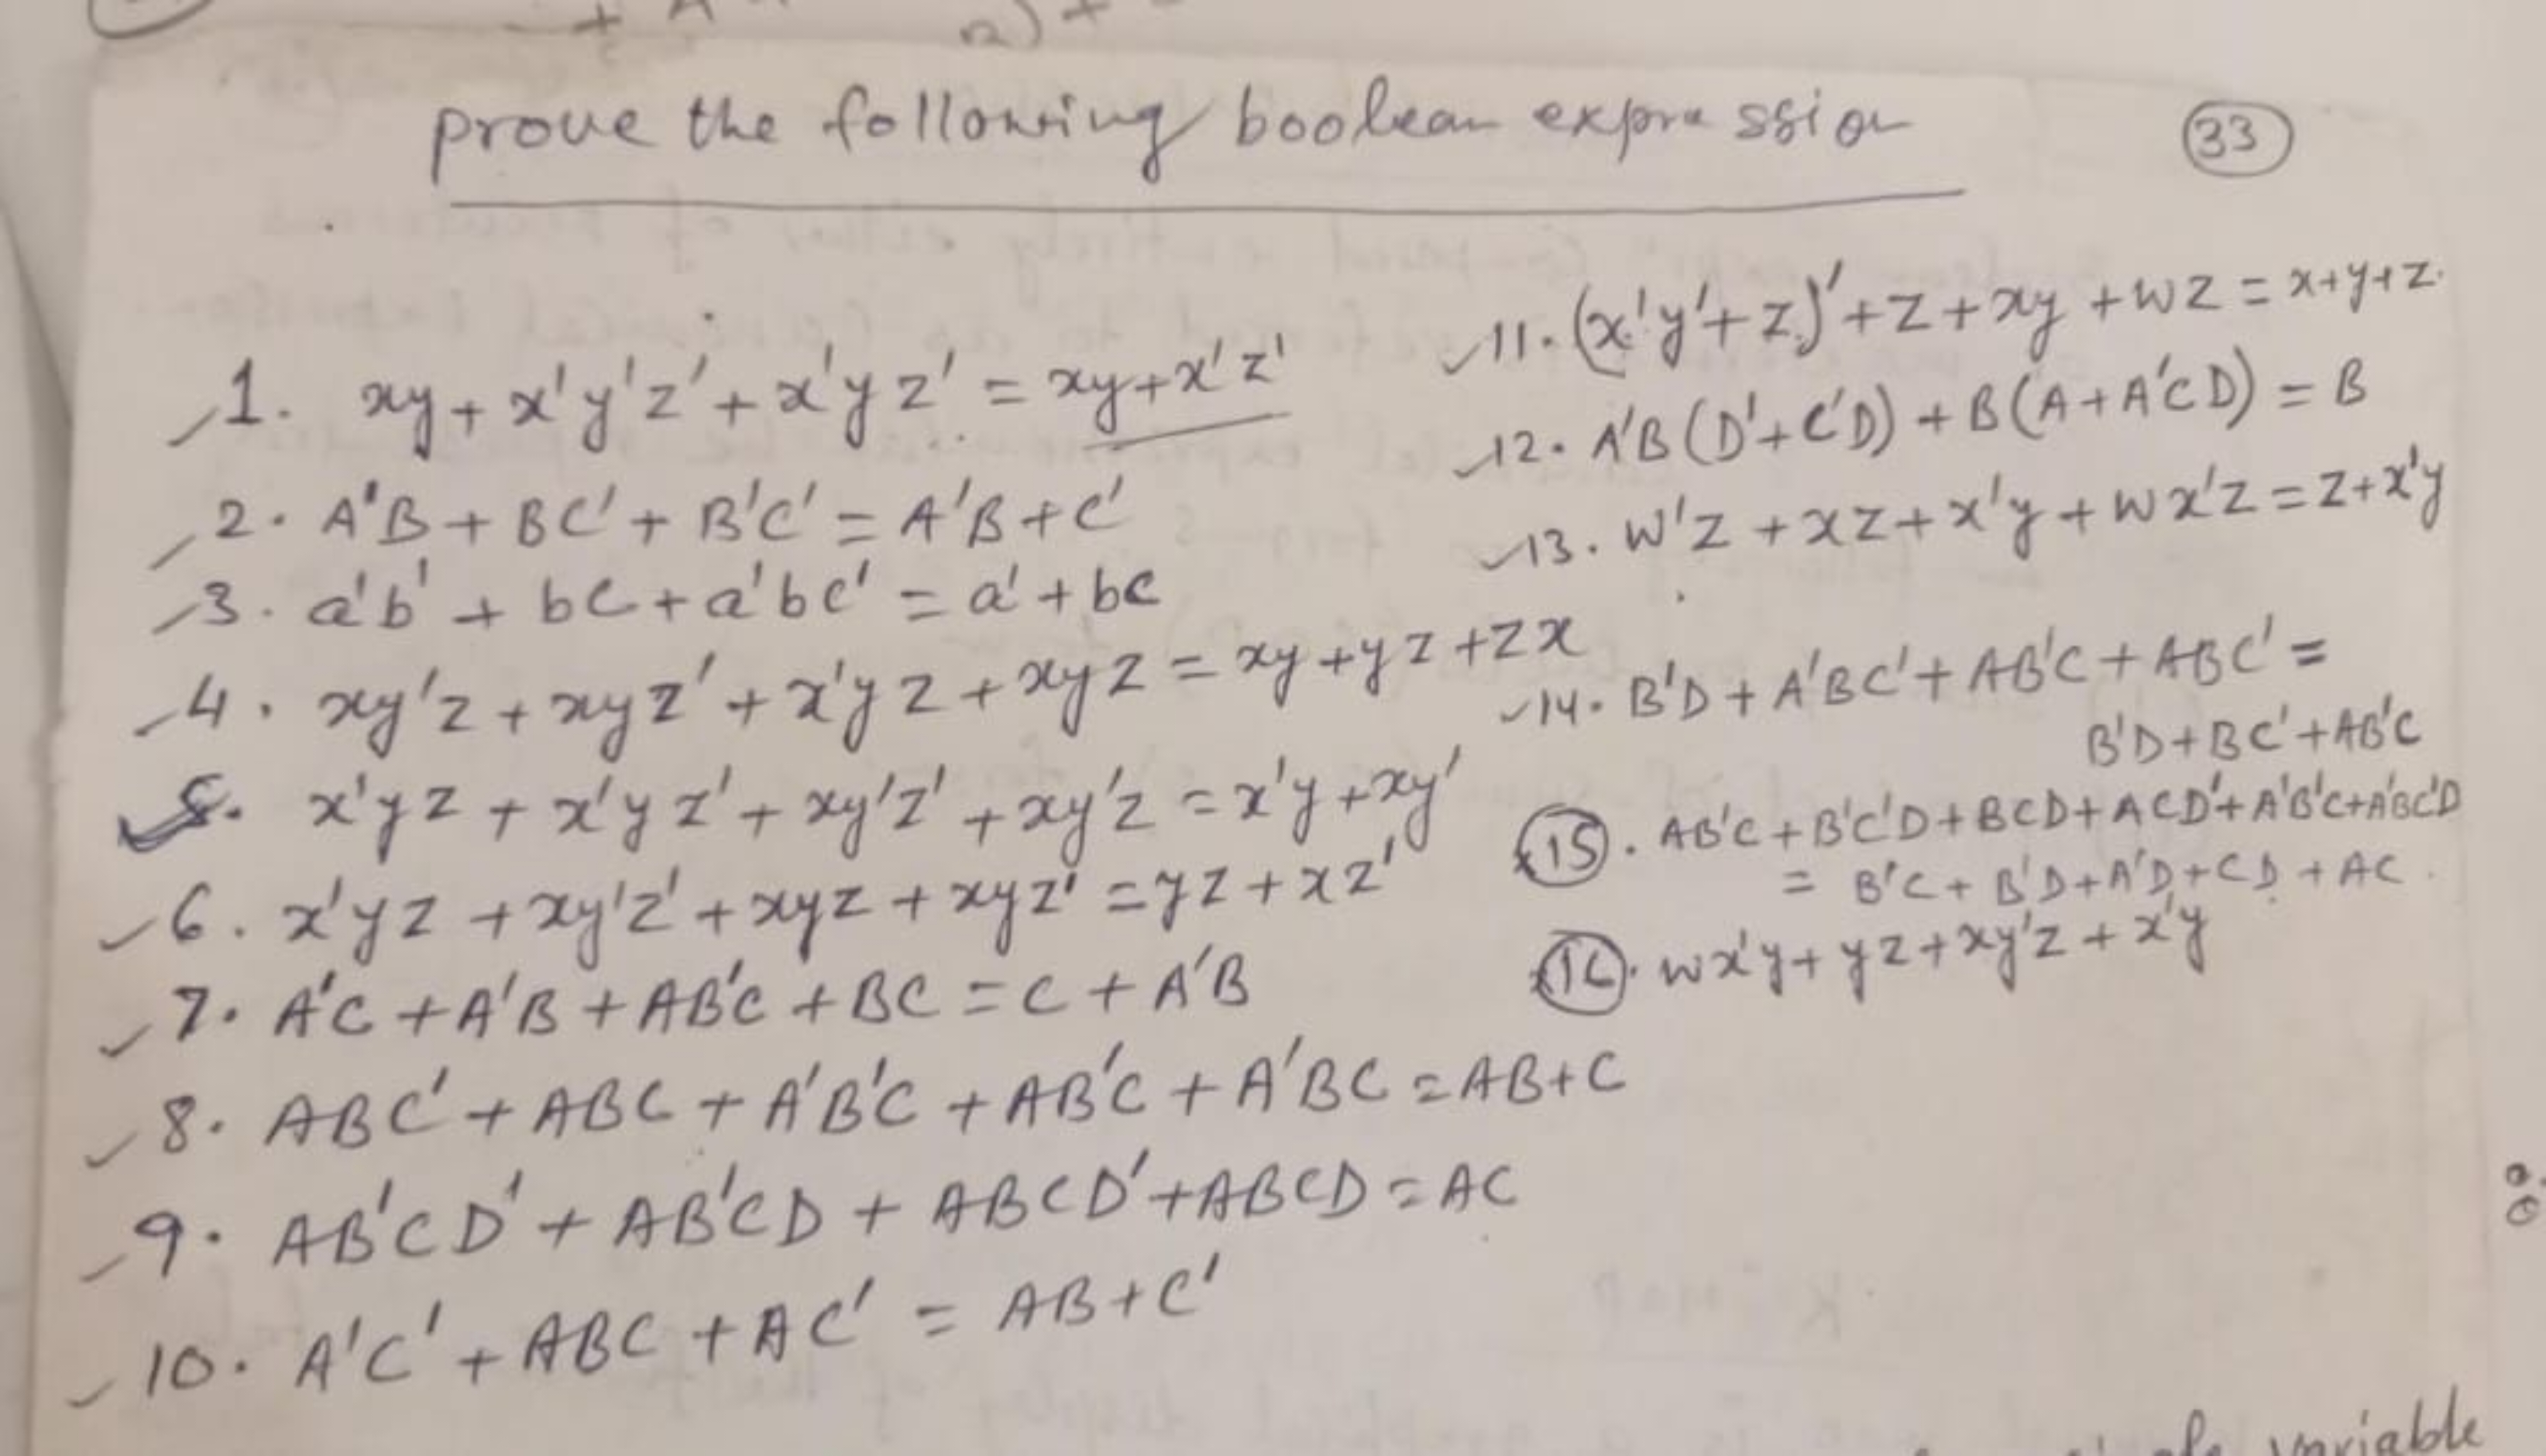 prove the following boolean expression
33
1. xy + x'y'z' + x'yz' = xy+x'z'
2. A'B + BC' + B'C' = A'B + C'
3. a'b' + bc + a'bc' = a' + bc
4. xy'z + xyz' + x'yz + xyz = xy + yz + zx
5. x'yz + x'yz' + xy'z' + xy'z = x'y + xy'
6. x'yz + xy'z' + xyz + xyz' = yz + xz'
7. A'C + A'B + AB'C + BC = C + A'B
8. ABC' + ABC + A'B'C + AB'C + A'BC = AB+C
9. AB'CD' + AB'CD + ABCD' + ABCD = AC
10. A'C' + ABC + AC' = AB + C'
11. (x'y' + z)' + z + xy + wz = x+y+z.
12. A'B(D' + C'D) + B(A + A'CD) = B
13. w'z + xz + x'y + wx'z = z + x'y
14. B'D + A'BC' + AB'C + ABC' =
B'D + BC' + AB'C
15. AB'C + B'C'D + BCD + ACD' + A'B'C + A'BC'D
= B'C + B'D + A'D + CD + AC.
16. wx'y + yz + xy'z + x'y
variable